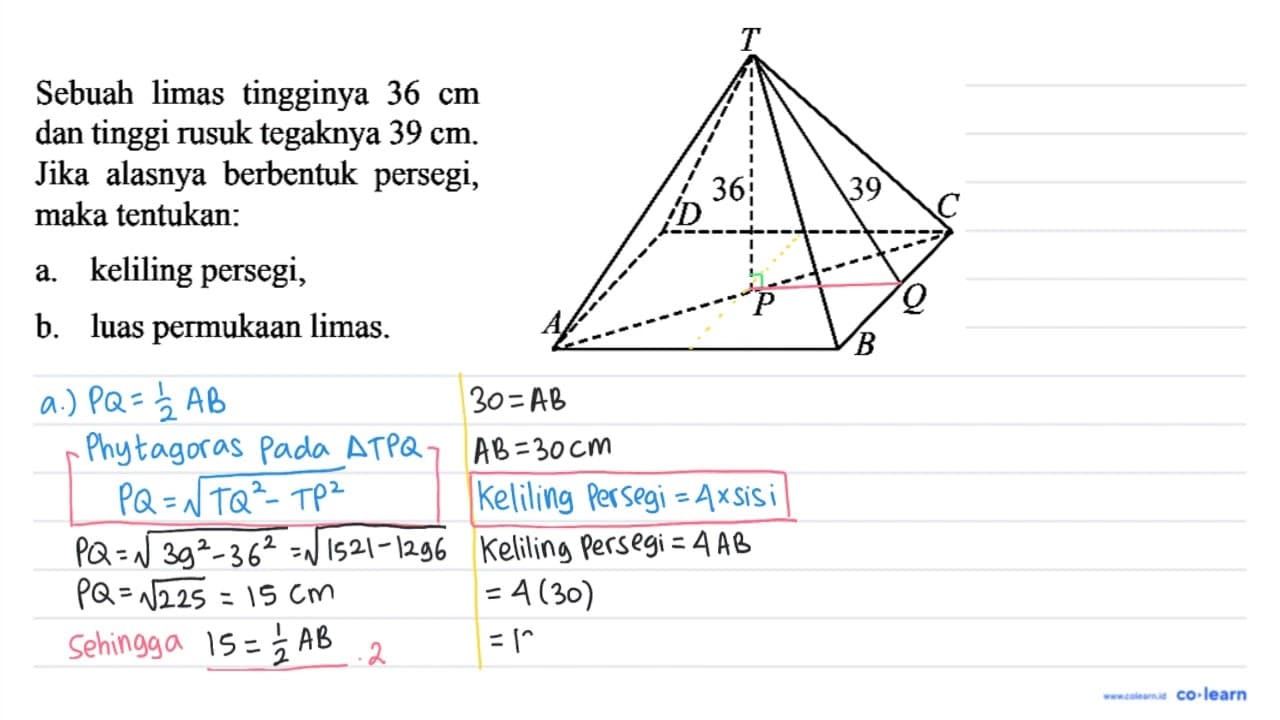 Sebuah limas tingginya 36 cm
dan tinggi rusuk tegaknya 39 cm.
Jika alasnya berbentuk persegi,
maka tentukan:
a. keliling persegi,
b. luas permukaan limas.
T
36
39
D
C
P
Q
A
B
a.) PQ = 1/2 AB
Phytagoras Pada ΔTPQ
PQ = √TQ² - TP²
PQ = √39² - 36² = √1521 - 1296
PQ = √225 = 15 cm
Sehingga 15 = 1/2 AB .2
30 = AB
AB = 30 cm
Keliling Persegi = 4 x sisi
Keliling Persegi = 4 AB
= 4 (30)
= 1
www.colearn.id co·learn